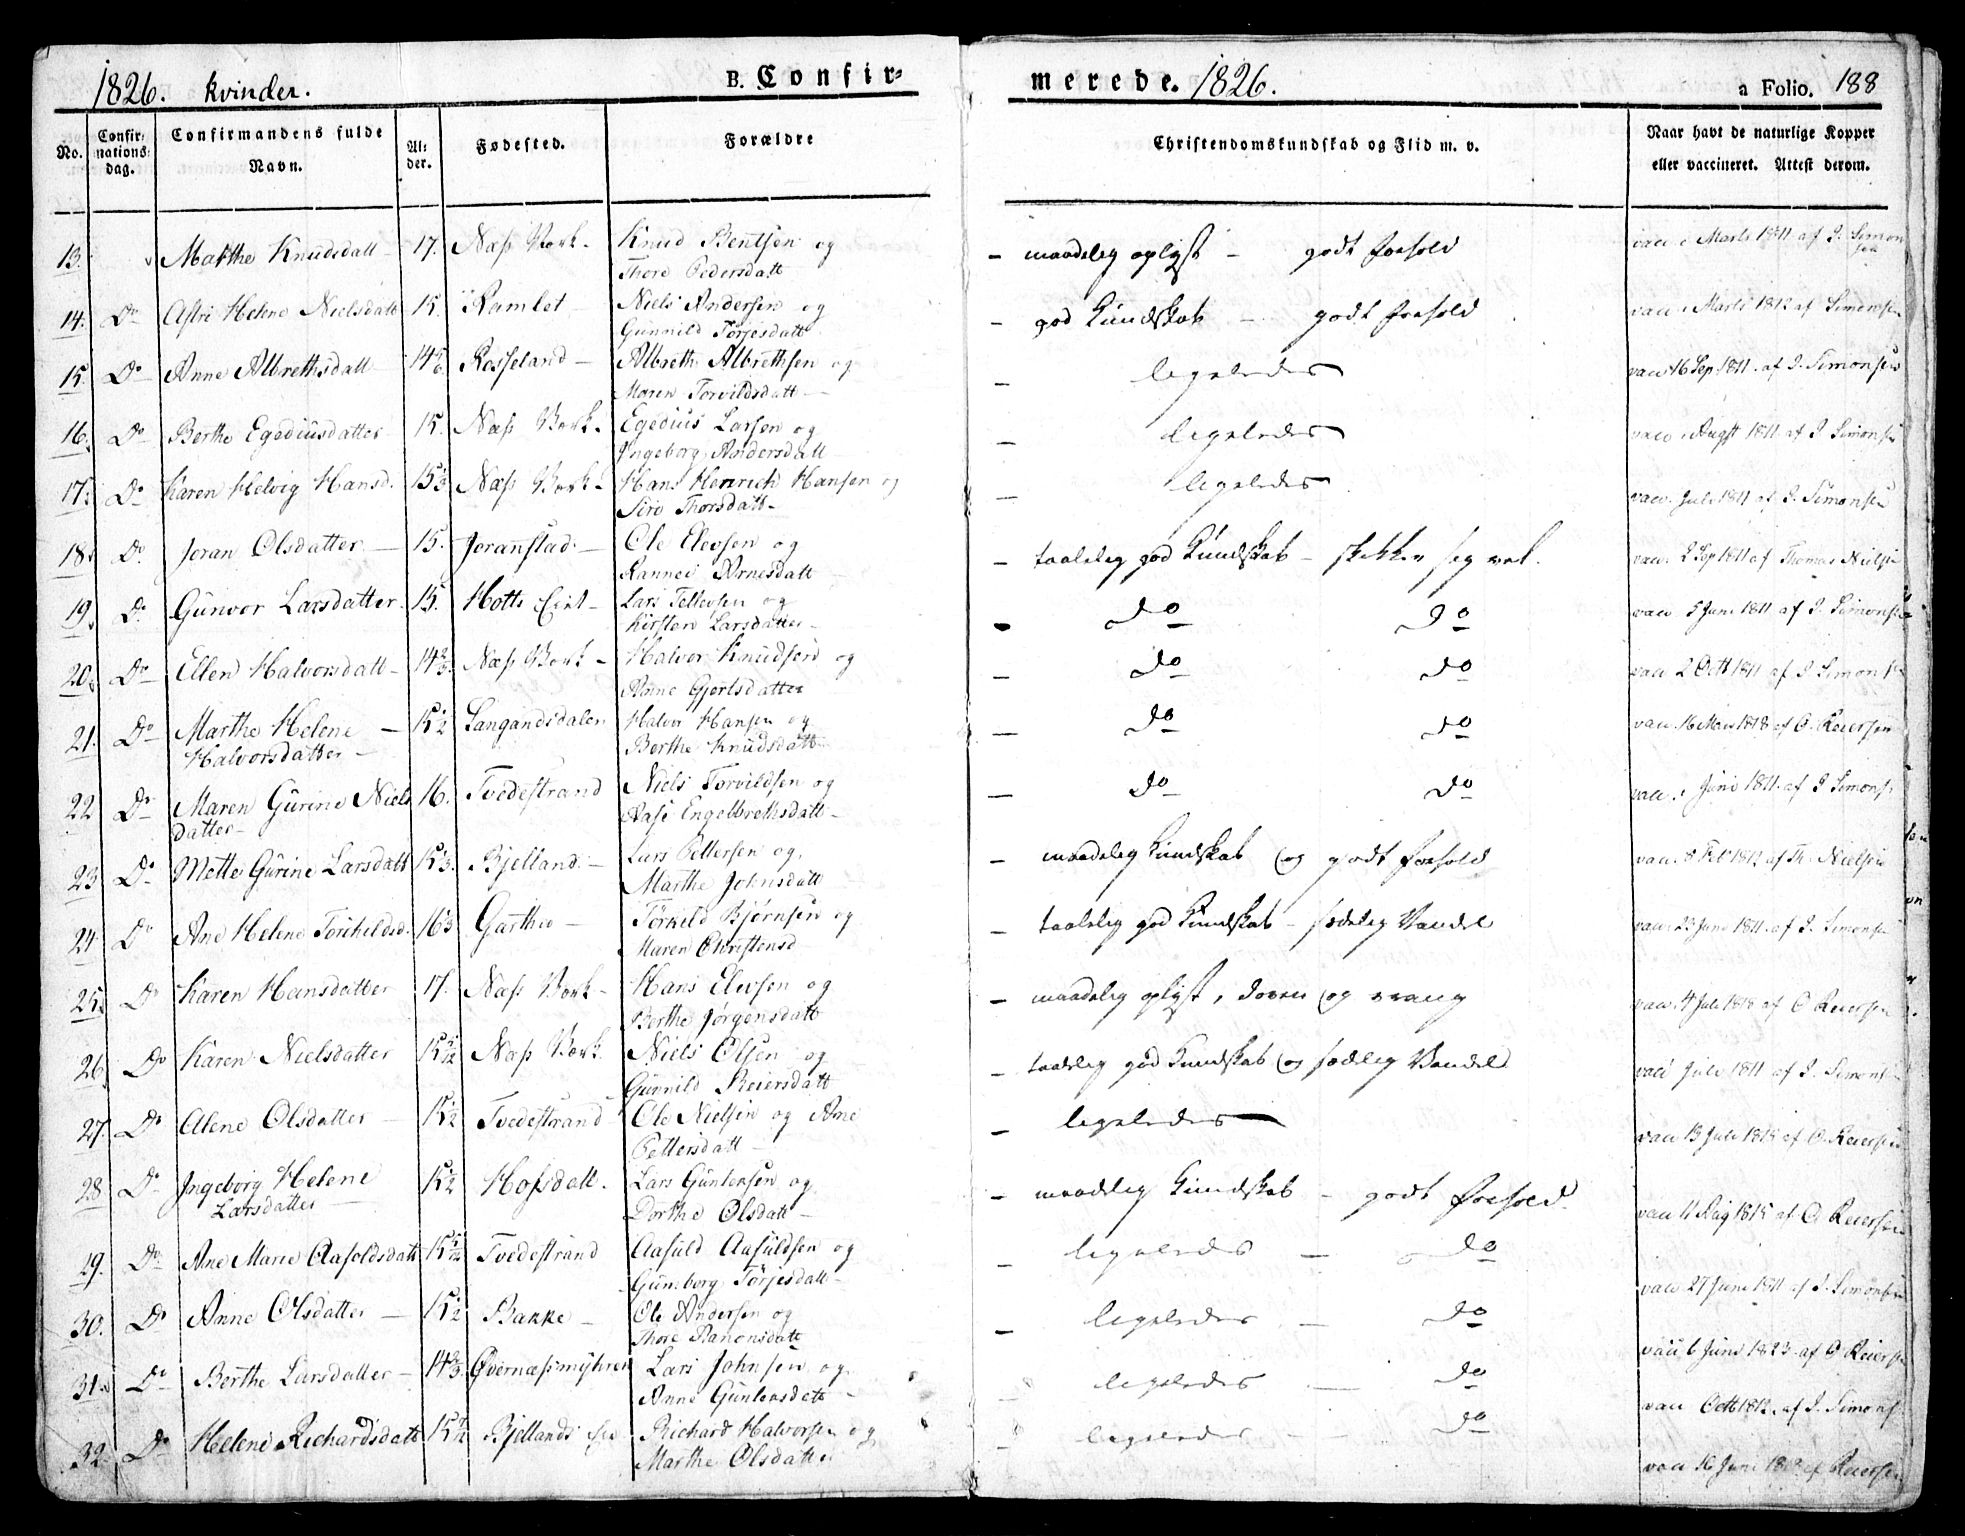 1826. kvinder. B. Confir=
merede. 1826. a Folio. 188
No. Confir=nations=dag. Confirmandens fulde Navn. Al=der. Fødested. Forældre
Christendomskundskab og Flid m. v. Naar havt de naturlige Kopper eller vaccineret. Attest derom.
13. Marthe Knudsdatt 17. Næs Verk Knud Bentsen og
Thore Pedersdatt
maadelig oplyst - godt forhold vacc i Marts 1811 af J. Simonsen
14. Do Astri Helene Nielsdatt 15. Ramlet Niels Andersen og
Gunnild Torjesdatt
god Kundskab - godt forhold vacc i Marts 1812 af Simonsen
15. Do Anne Albrethsdatt Rosseland Albreth Albrethsen og
Maren Torvildsdatt
ligeledes vacc 16 Sep 1811 af J. Simonsen
16. Do Berthe Egediusdatter 15. Næs Verk Egedius Larsen og
Ingeborg Andersdatt
ligeledes vacc i Augst 1811 af J Simonsen
17. Do Karen Helvig Hansd. 15⅓ Næs Verk Hans Henrich Hansen og
Siro Thorsdatt
ligeledes vacc. Juli 1811 af J. Simonsen
18. Do Joran Olsdatter 15. Joranstad Ole Elevsen og
Rannei Arnesdatt
taalelig god Kundskab - skikker sig vel. vacc. 2 Sep 1811 af Thomas Nielsen
19. Do Gunvor Larsdatter 15. Holts Lars Tellevsen og
Kirsten Larsdatter
do do vacc 5 Juni 1811 af J. Simonsen
20. Do Ellen Halvorsdatt 14⅔ Næs Verk Halvor Knudsen og
Anne Gjertsdatter
do do vacc 2 Oct 1811 af J Simonsen
21. Do Marthe Helene 15½ Sangandsdalen Halvor Hansen og
Halvorsdatter Berthe Knudsdatt
do do vacc. 16 1818 af O. Reiersen
22 Do Maren Gurine Niels 16. Tvedestrand Niels Torvildsen og
datter Aase Engelbrethsdatt
do do vacc. i Juni 1811. af J Simons
23 Do Mette Gurine Larsdatt 15⅓. Bjelland Lars Pettersen og
Marthe Johnsdatt
maadelig Kundskab og godt forhold vacc. 8 1812 af Th. Nielsen
24 Do Ane Helene Torkeldsd. 16⅓ Garthe Torkeld Bjørnsen og
Maren Christensd
taalelig god Kundskab - sædelig Vandel vacc 23 Juni 1811. af J. Simonsen
25. Do Karen Hansdatter 17. Næs Verk Hans Elevsen og
Berthe Jørgensdatt
maadelig oplyst, doven og vrang vacc. 4 Juli 1818 af O Reiersen
26 Do Karen Nielsdatter Næs Verk Niels Olsen og
Gunnild Reiersdatt
taalelig god Kundskab og sædelig Vandel vacc Juli 1811 af J. Simons
27. Do Alene Olsdatter 15½ Tvedestrand Ole Nielsen og Ane
Pettersdatt
ligeledes vacc 13 Juli af O. Reiersen
28 Do Ingeborg Helene 15½ Hofsdatt. Lars Guntersen og
Larsdatter Dorthe Olsdatt
maadelig Kundskab - godt forhold. vacc 11 1815 af O. Reiersen
29. Do Ane Marie Aasoldsdatt Tvedestrand Aasuld Aasuldsen og
Gunborg Torjesdatt
ligeledes do vacc 27 Juni 1811 af J. Simonsen
30. Do Anne Olsdatter 15½ Bakke Ole Andersen og
Thore
ligeledes do vacc 6 Juni 1823 af O Reiersen
31. Do Berthe Larsdatter 14⅔ Qvernæsmyhren Lars Johnsen og
Anne
ligeledes do vacc Octb 1812. af J. Simons
32. Do Helene Richardsdatt Bjellands Richard Halvorsen og
Marthe Olsdatter
ligeledes do vacc 16 Juni af Reiersen